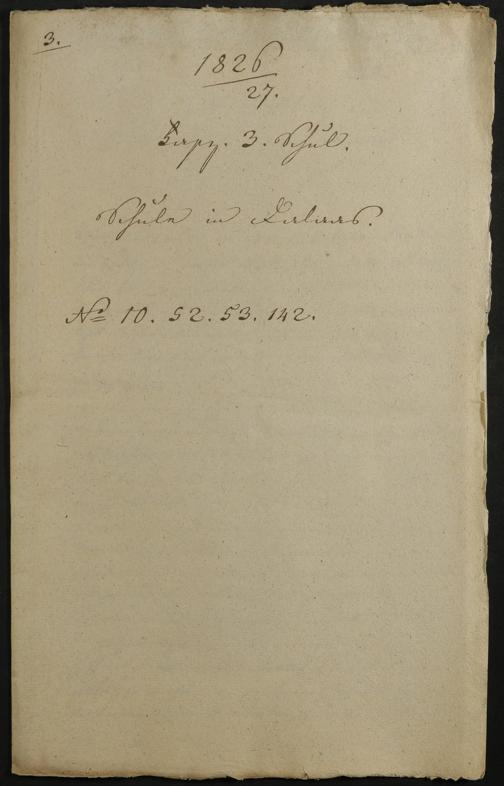 3.
1826
27.
Fasz. 3. Schul.
Schule in Dalaas.
No 10. 52. 53. 142.